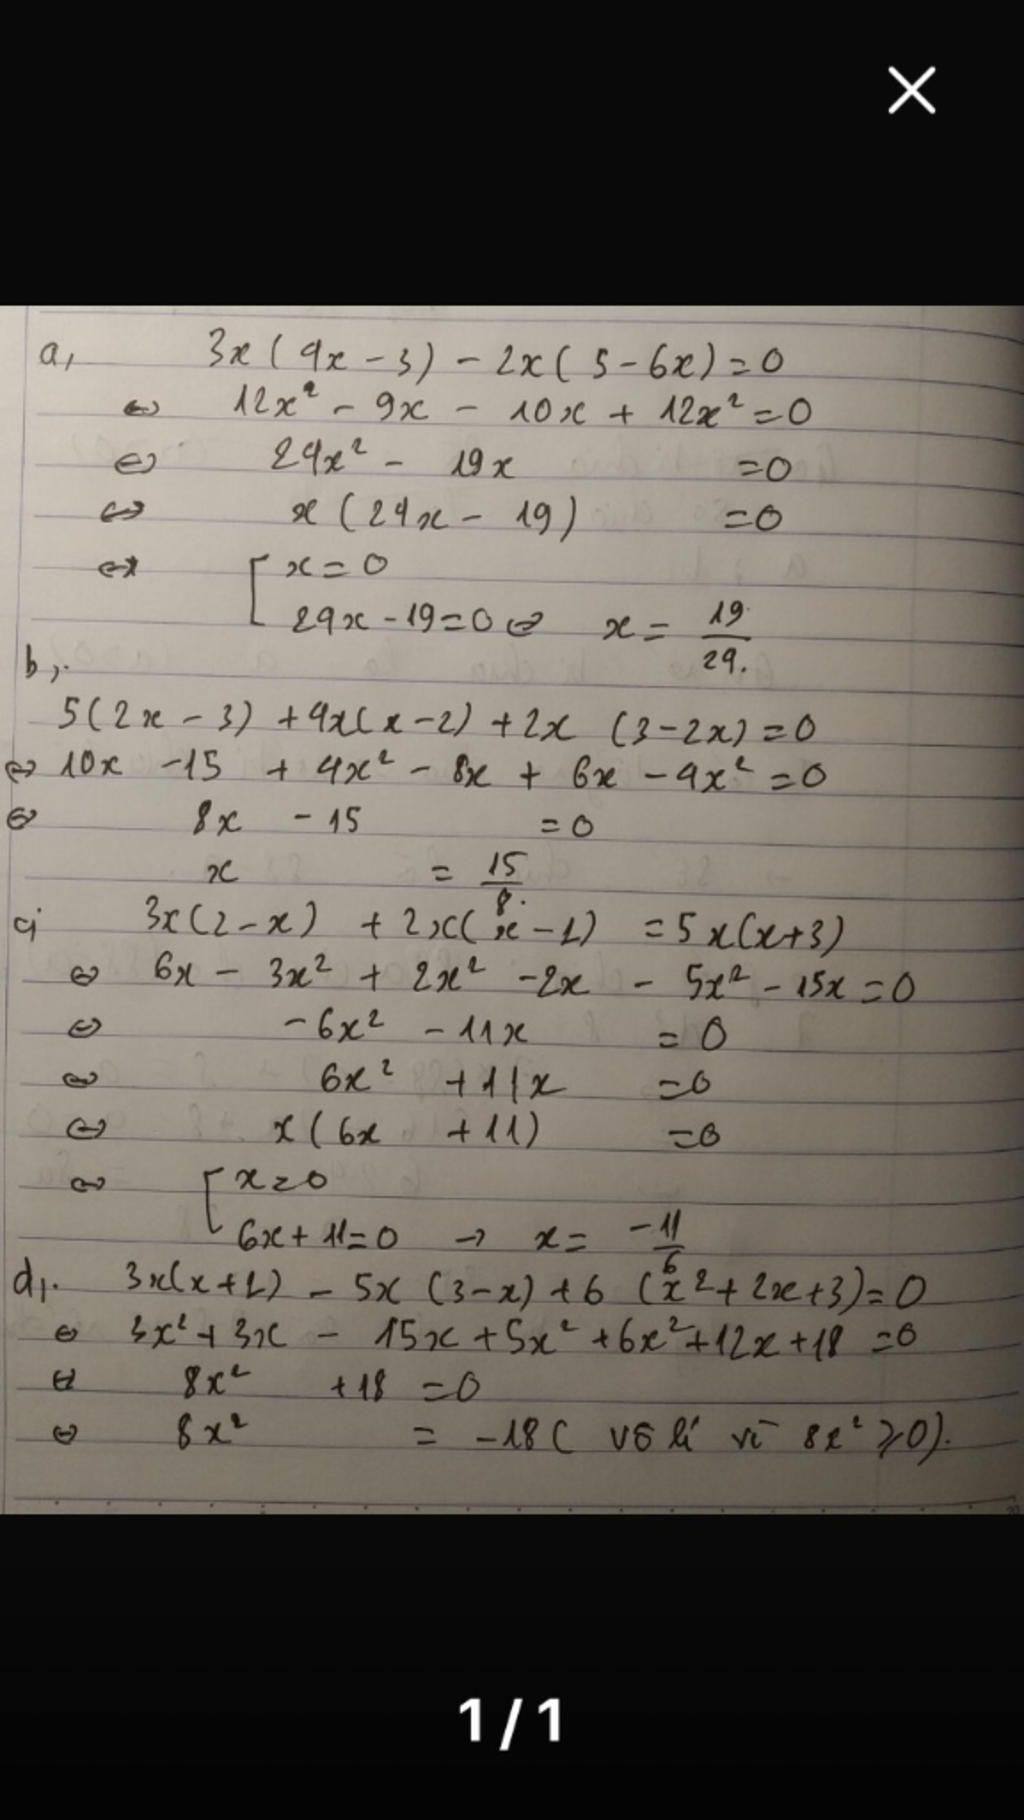 a, 3x(4x-3) - 2x(5-6x)=0
⇔ 12x² - 9x - 10x + 12x²=0
⇔ 24x² - 19x =0
⇔ x(24x - 19) =0
⇔ [ x=0
24x-19=0 ⇔ x= 19/24.
b,.
5(2x-3) +4x(x-2) +2x (3-2x)=0
⇔ 10x -15 + 4x² - 8x + 6x -4x²=0
⇔ 8x - 15 =0
x = 15/8.
c, 3x(2-x) + 2x(x-1) =5x(x+3)
⇔ 6x - 3x² + 2x² -2x - 5x² - 15x=0
⇔ -6x² - 11x = 0
⇔ 6x² +11x =0
⇔ x(6x +11) =0
⇔ [ x=0
6x+11=0 → x= -11/6
d,. 3x(x+1) - 5x (3-x)+6 (x²+2x+3)=0
⇔ 3x²+3x - 15x+5x²+6x²+12x+18 =0
⇔ 8x² +18 =0
⇔ 8x² = -18( vô lí vì 8x² ≥0).
1/1